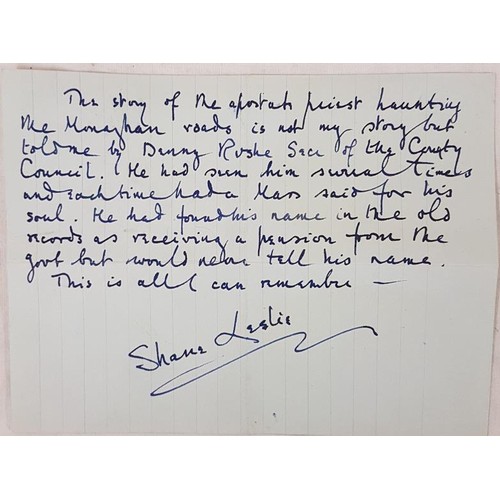 The story of the apostate priest haunting
the Monaghan roads is not my story but
told me by Denny Rushe Secr of the County
Council. He had seen him several times
and each time had a Mass said for his
soul. He had found his name in the old
records as receiving a pension from the
govt but would never tell his name.
This is all I can remember —
Shane Leslie